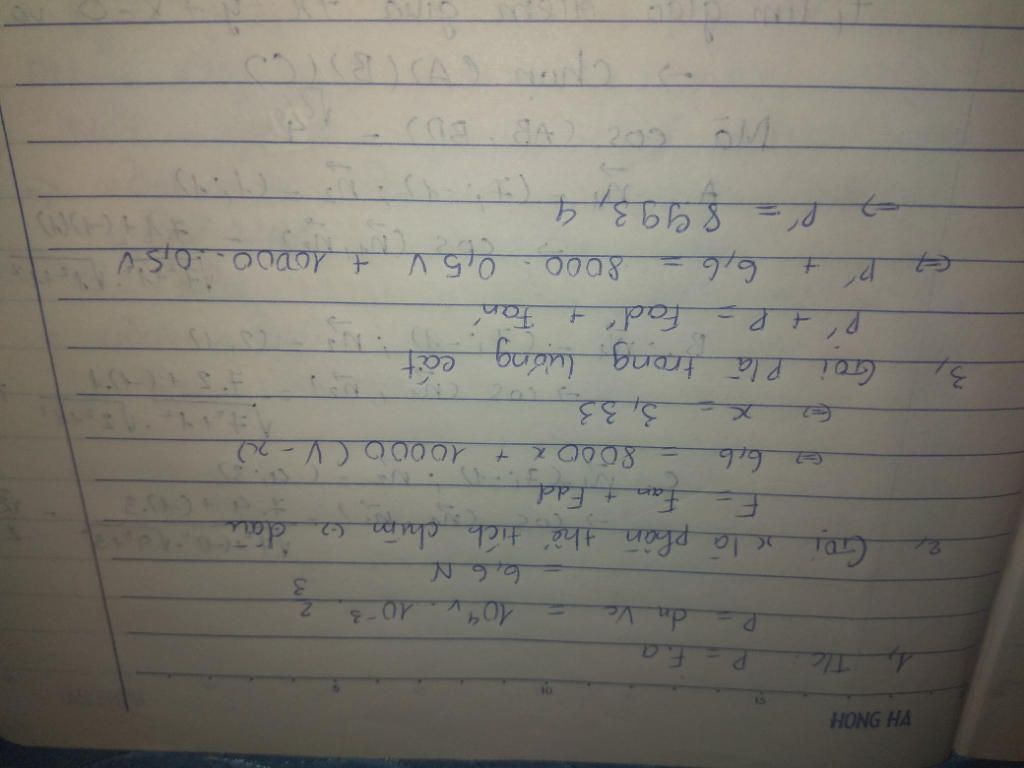 HONG HA
1, T/c: P = F.a
P = dn Vc = 10⁴v. 10⁻³. 2/3
= 6,6 N
2, Gọi x là phần thể tích chìm ⇔ dầu
F = Fan + Fad
⇔ 6,6 = 8000x + 10000 (V-x)
⇔ x = 3,33
3, Gọi P là trong lướng cát
P' + P = Fad' + Fan'
⇔ P' + 6,6 = 8000. 0,5 V + 10000. 0,5V
⇒ P' = 8993,4